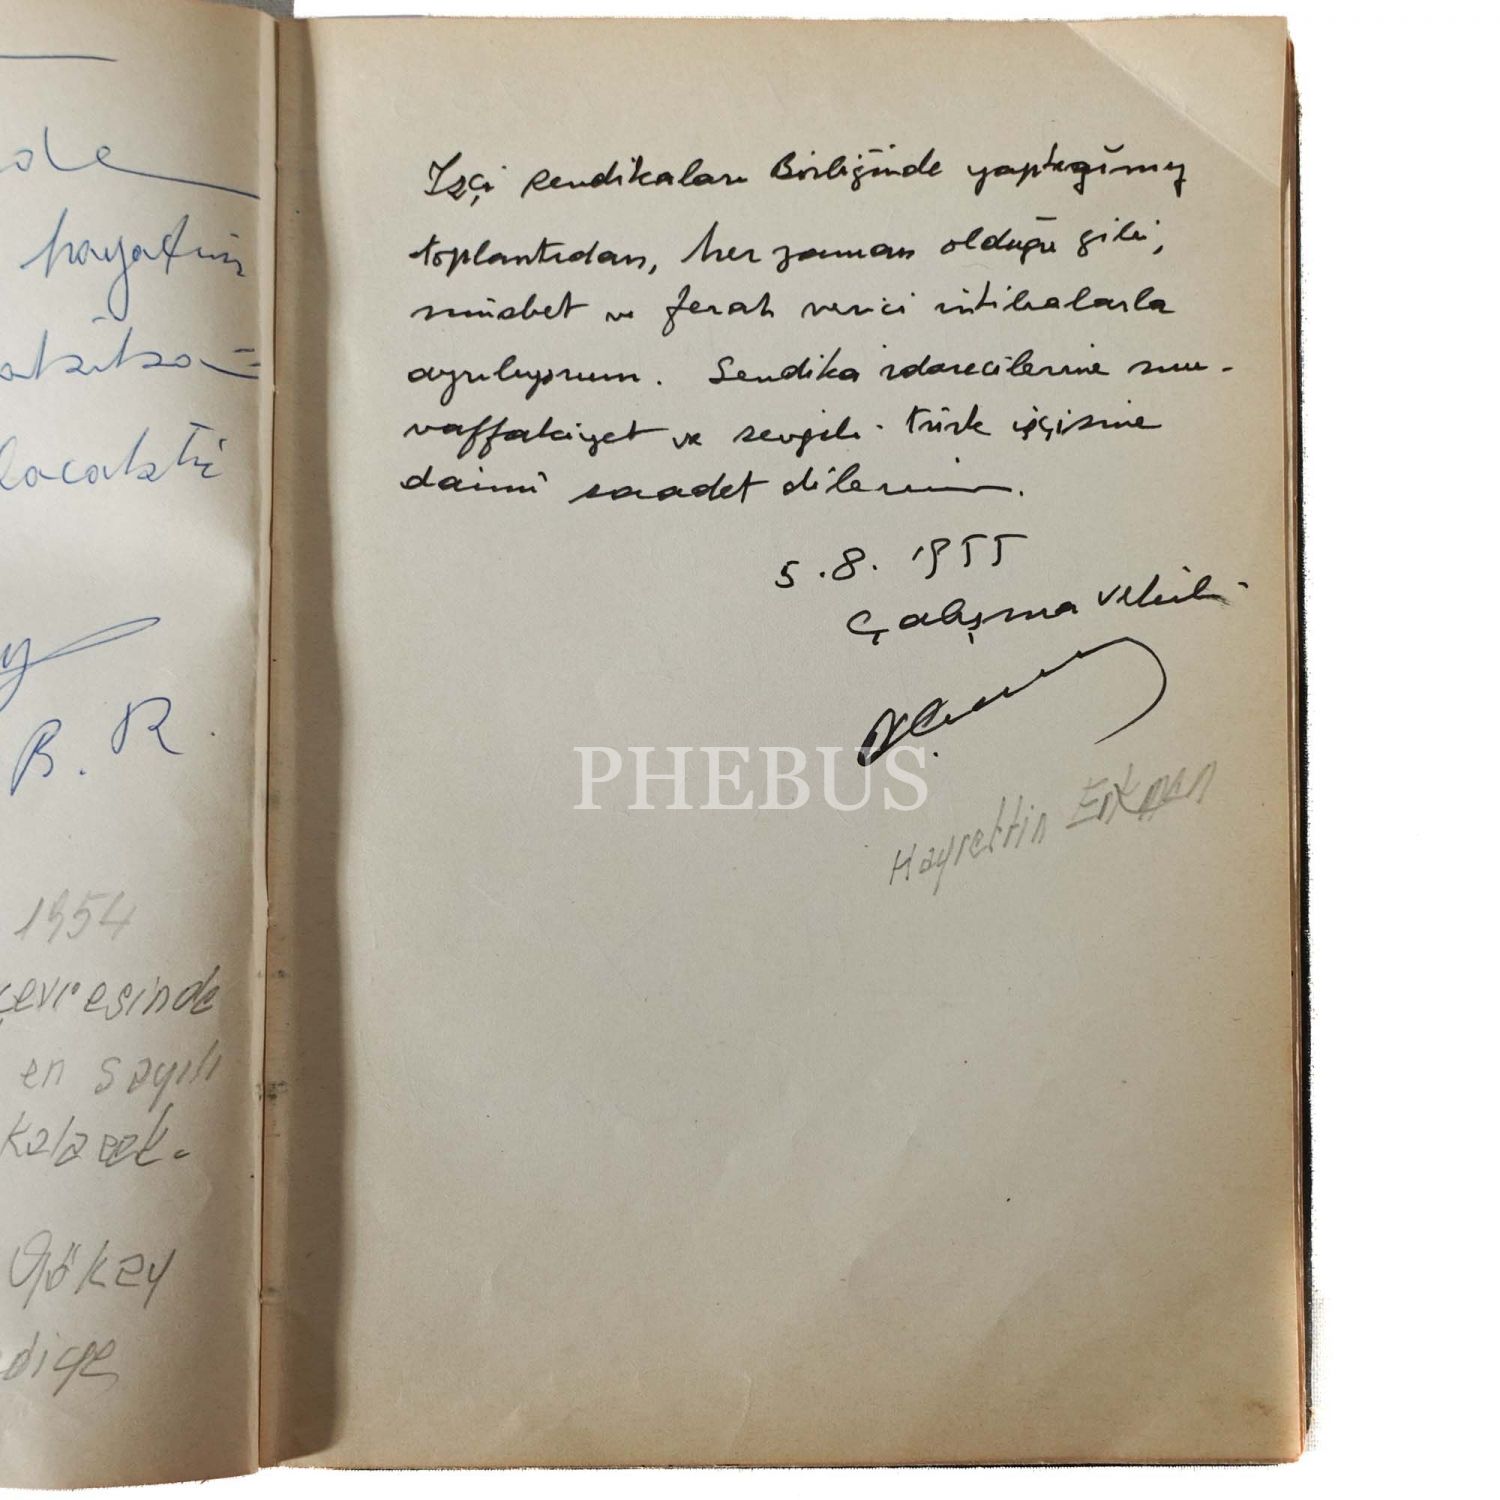 de
hayatın
B. R.
1954
çevresinde
en sayılı
kalacak.
Gökay
İşçi Sendikaları Birliğinde yaptığımız
toplantıdan, her zaman olduğu gibi,
müsbet ve ferah verici intibalarla
ayrılıyorum. Sendika idarecilerine mu-
vaffakiyet ve sevgili Türk işçisine
daimî saadet dilerim.
5.8.1955
Çalışma Vekili
Hayrettin Erkmen
PHEBUS